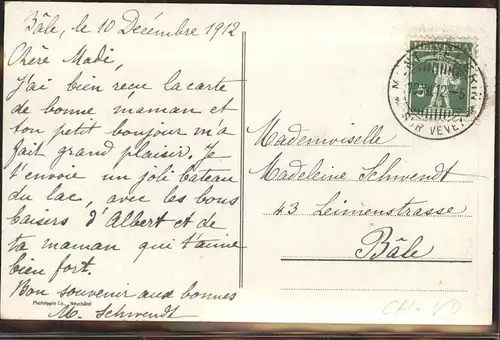 Bâle, le 10 Décembre 1912
Chère Madi,
J'ai bien reçu la carte
de bonne maman et
ton petit bonjour m'a
fait grand plaisir. Je
t'envoie un joli bateau
du lac, avec les bons
baisers d'Albert et de
ta maman qui t'aime
bien fort.
Bon souvenir aux bonnes
M. Schwendt
Phototypie Co., Neuchâtel
HELVETIA
SUR VEVEY
Mademoiselle
Madeleine Schwendt
43 Leimenstrasse
Bâle
CH-VD